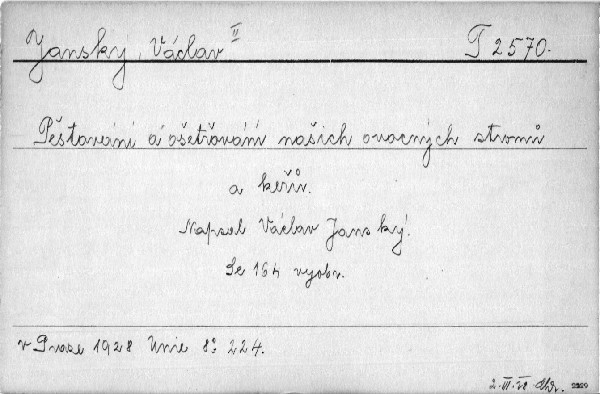 Janský, Václav II T 2570.
Pěstování a ošetřování našich ovocných stromů
a keřův.
Napsal Václav Janský.
Se 164 vyobr.
v Praze 1928 Unie 8° 224.
2.VI.